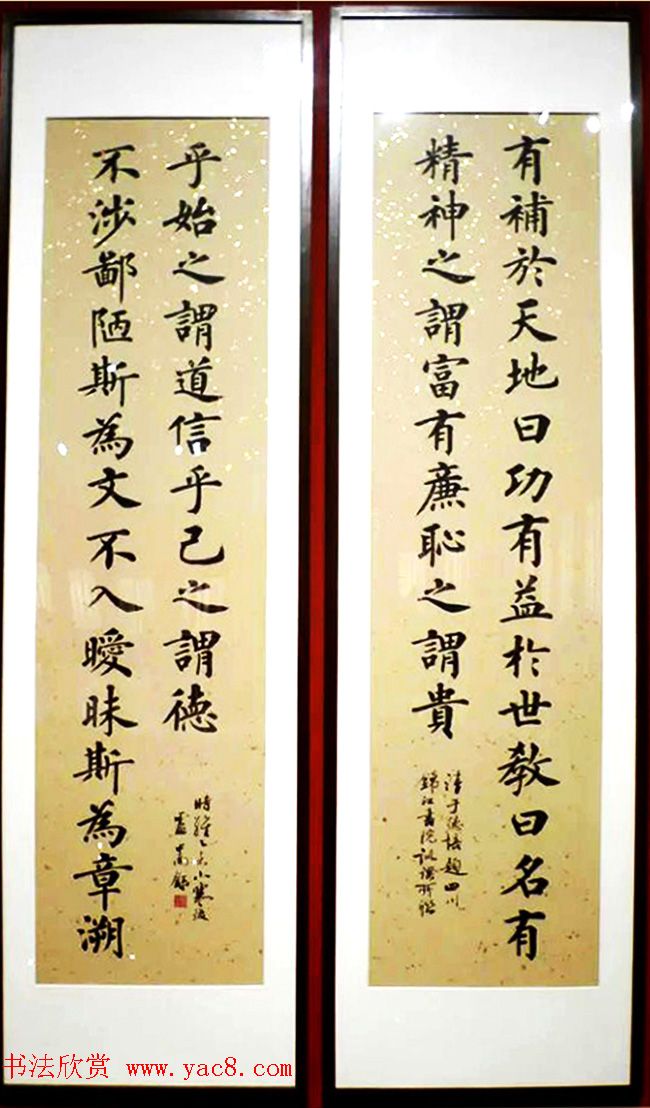 有補於天地曰功有益於世教曰名有
精神之謂富有廉恥之謂貴
清于德培題四川
錦江書院
不涉鄙陋斯為文不入曖昧斯為章溯
乎始之謂道信乎己之謂德
時維乙未小寒後
书法欣赏 www.yac8.com